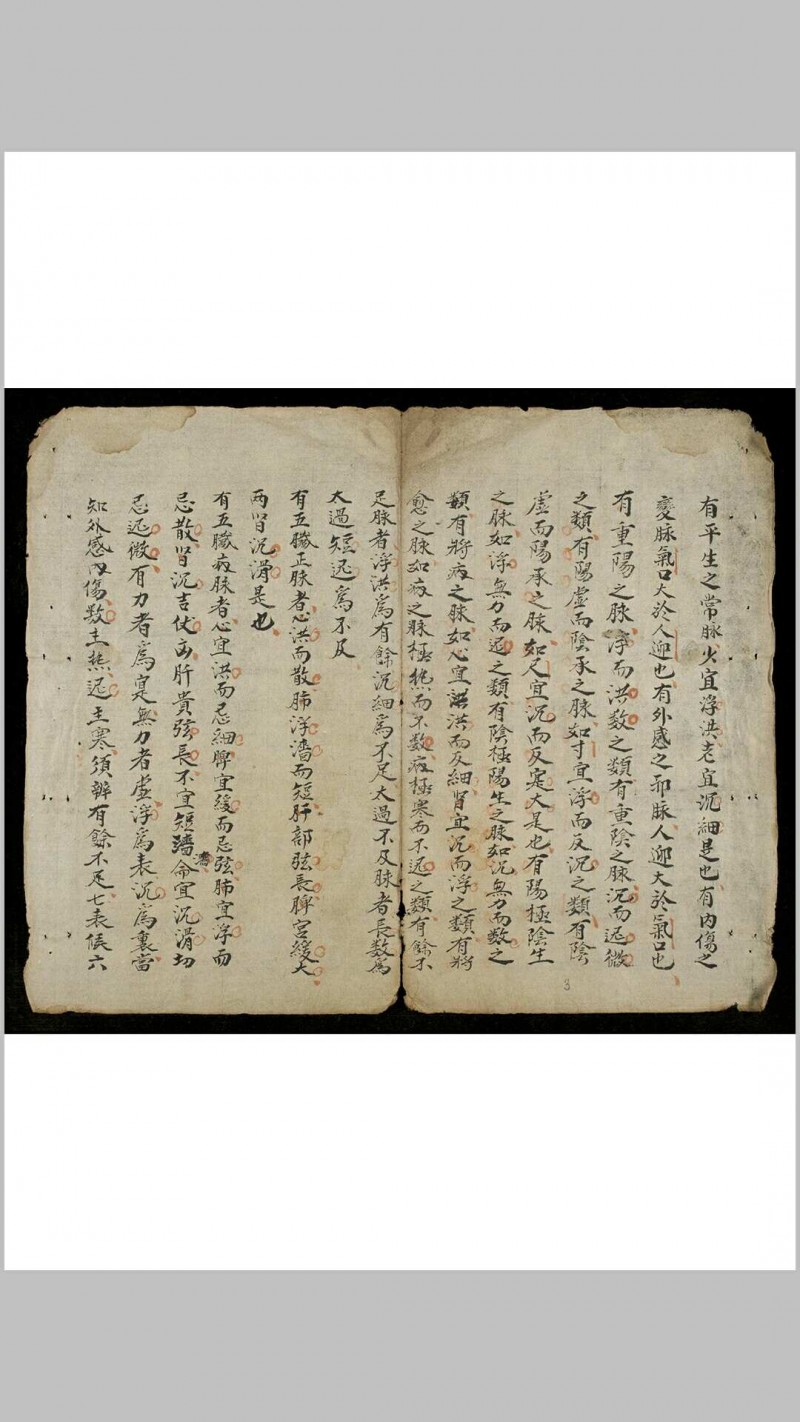 有平生之常脉少宜浮洪老宜沉細是也有内傷之
變脉氣口大於人迎也有外感之邪脉人迎大於氣口也
有重陽之脉浮而洪数之類有重陰之脉沉而迟微
之類有陽虚而陰承之脉如寸宜浮而反沉之類有陰
虚而陽承之脉如尺宜沉而反寔大是也有陽極陰生
之脉如浮無力而迟之類有陰極陽生之脉如沉無力而数之
類有將病之脉如心宜洪洪而反細肾宜沉而浮之類有將
愈之脉如病之脉極熱而不数病極寒而不迟之類有餘不
足脉者浮洪為有餘沉細為不足太過不及脉者長数為
太過短迟為不及
有五臟正脉者心洪而散肺浮濇而短肝部弦長脾宮緩大
两肾沉滑是也
有五臟病脉者心宜洪而忌細脾宜緩而忌弦肺宜浮而
忌散肾沉吉伏凶肝貴弦長不宜短濇命宜沉滑切
忌迟微有力者為寔無力者虚浮為表沉為裏當
知外感内傷数主熱迟主寒須辨有餘不足七表候六
3